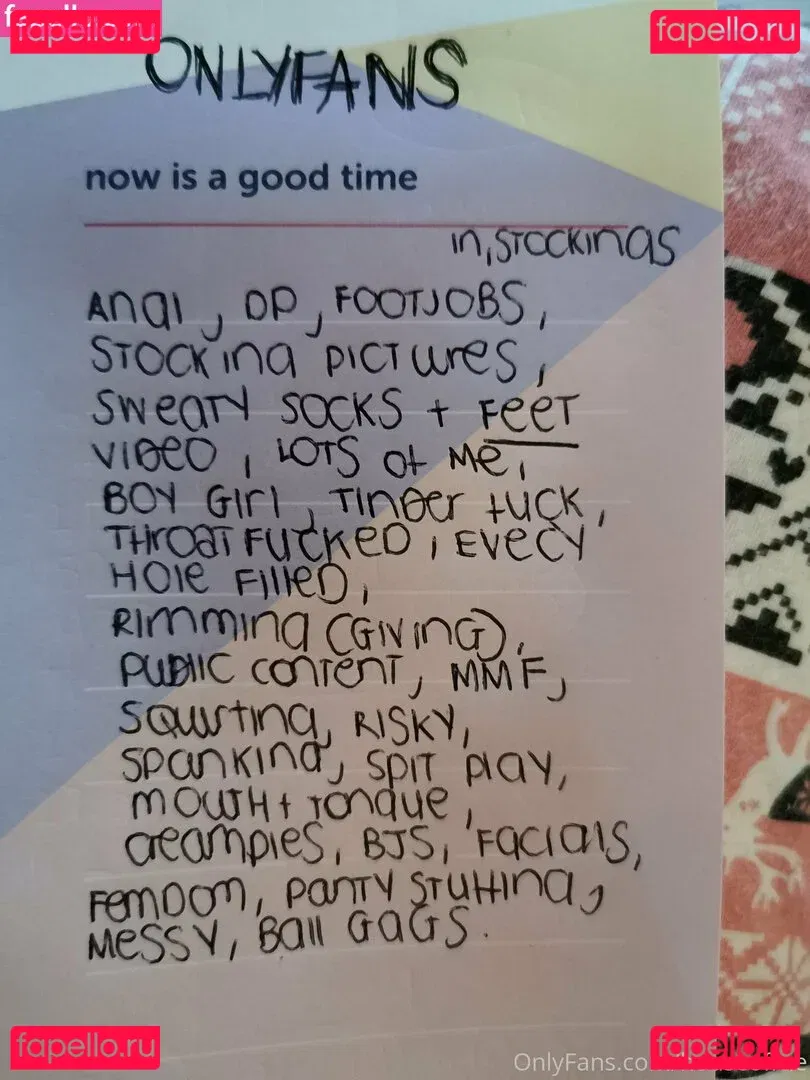 fapello.ru
fapello.ru
ONLYFANS
now is a good time
in, STOCKINGS
Anal, DP, FOOTJOBS,
STOCKING PICTURES,
SWEATY SOCKS + FEET
VIDEO, LOTS OF ME,
BOY GIRL, TINDER FUCK,
THROAT FUCKED, EVERY
HOLE FILLED,
RIMMING (GIVING),
PUBLIC CONTENT, MMF,
SQUIRTING, RISKY,
SPANKING, SPIT PLAY,
MOUTH + TONGUE,
CREAMPIES, BJS, FACIALS,
FEMDOM, PANTY STUFFING,
MESSY, BALL GAGS.
fapello.ru
OnlyFans.co